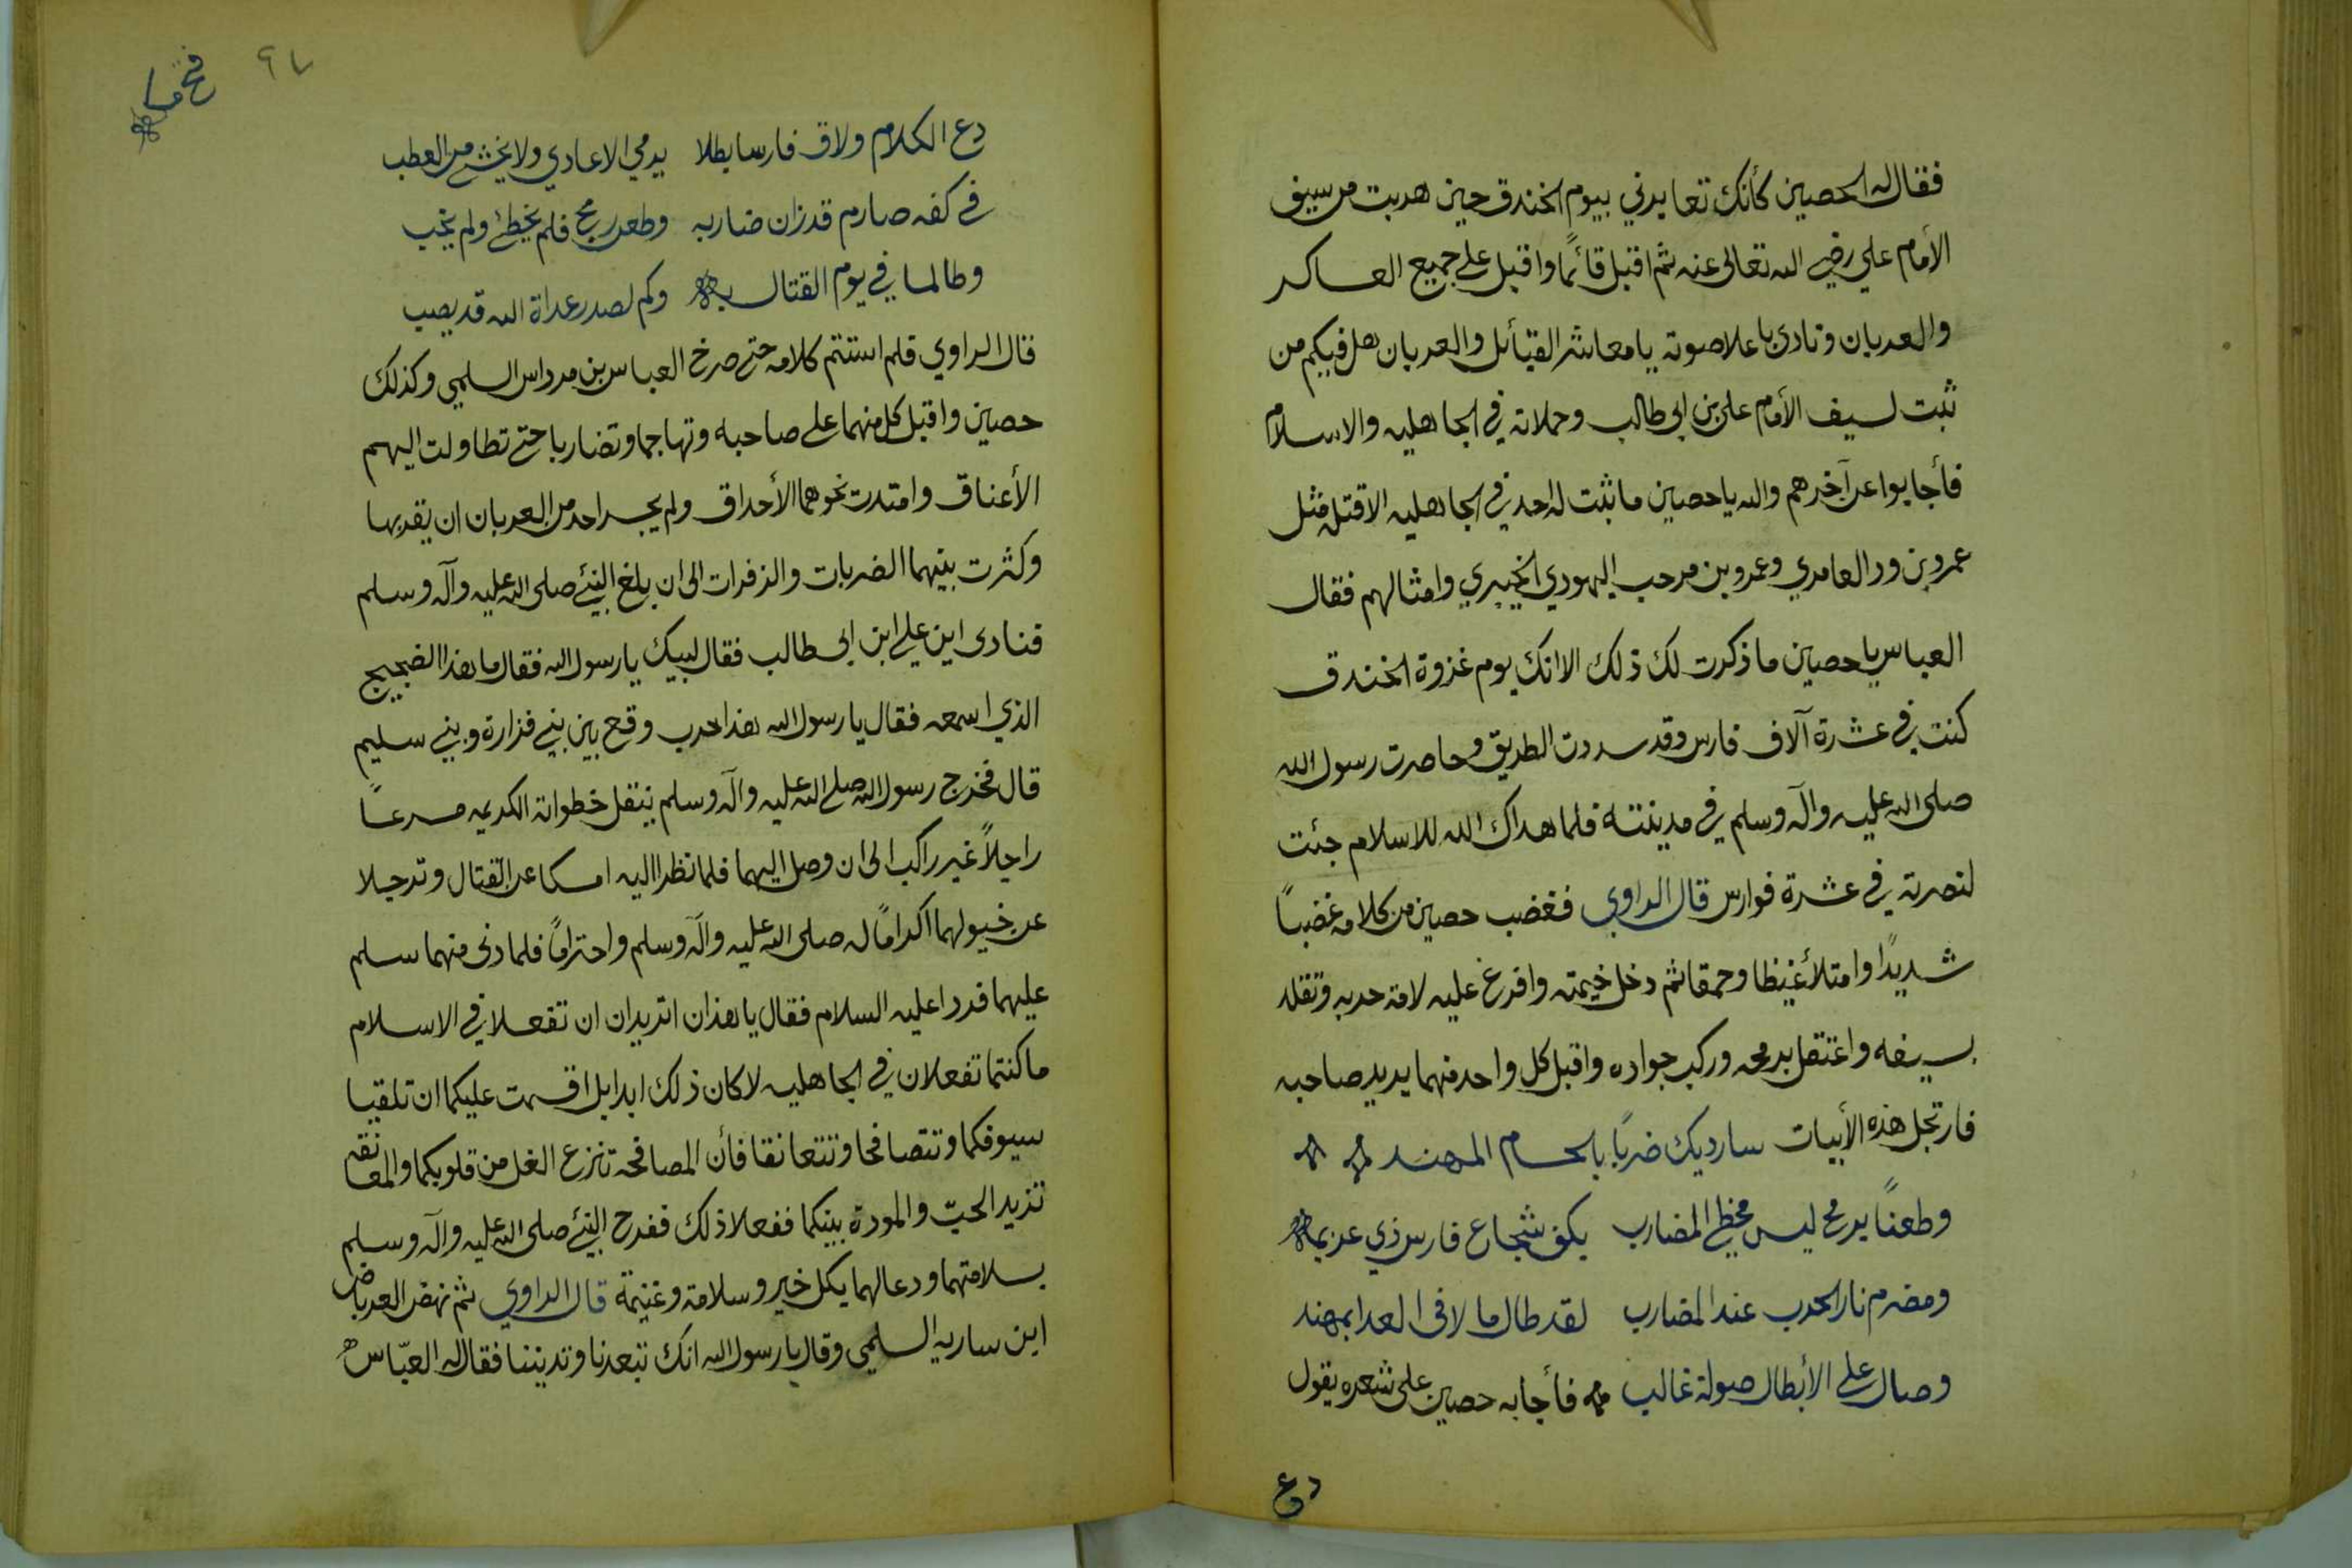 فقال له الحصين كأنك تعايرني بيوم الخندق حين هربت من سيف
الأمام علي رضي الله تعالى عنه ثم اقبل قائمًا واقبل على جميع العساكر
والعربان ونادى باعلا صوته يا معاشر القبائل والعربان هل فيكم من
ثبت لسيف الأمام علي بن ابي طالب وحملاته في الجاهليه والاسلام
فأجابوا عن آخرهم والله يا حصين ما ثبت له احد في الجاهليه الا قتله مثل
عمرو بن ود العامري وعمرو بن مرحب اليهودي الخيبري وامثالهم فقال
العباس يا حصين ما ذكرت لك ذلك الا انك يوم غزوة الخندق
كنت في عشرة آلاف فارس وقد سددت الطريق وحاصرت رسول الله
صلى الله عليه وآله وسلم في مدينته فلما هداك الله للاسلام جئت
لنصرته في عشرة فوارس قال الراوي فغضب حصين من كلامه غضبًا
شديدًا وامتلأ غيظا وحمقا ثم دخل خيمته وافرغ عليه لامة حربه وتقلد
بسيفه واعتقل برمحه وركب جواده واقبل كل واحد منهما يريد صاحبه
فارتجل هذه الأبيات سارديك ضربًا بالحسام المهند
وطعنًا برمح ليس مخطي المضارب بكف شجاع فارس ذي عزيمة
ومضرم نار الحرب عند المضارب لقد طال ما لاقى العدا بمهند
وصال على الأبطال صولة غالب فأجابه حصين على شعره يقول
دع
٩٧
دع الكلام ولاق فارسا بطلا يدمي الاعادي ولا يخشى من العطب
في كفه صارم قد زان ضاربه وطعن رمح فلم يخطئ ولم يخب
وطالما في يوم القتال به وكم لصدر عداة الله قد يصب
قال الراوي فلم استتم كلامه حتى صرخ العباس بن مرداس السلمي وكذلك
حصين واقبل كل منهما على صاحبه وتهاجما وتضاربا حتى تطاولت اليهم
الأعناق وامتدت نحوهما الأحداق ولم يجسر احد من العربان ان يقربها
وكثرت بينهما الضربات والزفرات الى ان بلغ النبي صلى الله عليه وآله وسلم
فنادى اين علي ابن ابي طالب فقال لبيك يا رسول الله فقال ما هذا الضجيج
الذي اسمعه فقال يا رسول الله هذا حرب وقع بين بني فزارة وبني سليم
قال فخرج رسول الله صلى الله عليه وآله وسلم ينقل خطواته الكريمه مسرعًا
راجلاً غير راكب الى ان وصل اليهما فلما نظرا اليه امسكا عن القتال وترجلا
عن خيولهما اكرامًا له صلى الله عليه وآله وسلم واحترامًا فلما دنى منهما سلم
عليهما فردا عليه السلام فقال يا هذان اتريدان ان تفعلا في الاسلام
ما كنتما تفعلان في الجاهليه لا كان ذلك ابدا بل اقسمت عليكما ان تلقيا
سيوفكما وتتصافحا وتتعانقا فأن المصافحة تنزع الغل من قلوبكما والمعانقه
تزيد الحبّ والمودة بينكما ففعلا ذلك ففرح النبي صلى الله عليه وآله وسلم
بسلامتهما ودعا لهما بكل خير وسلامة وغنيمة قال الراوي ثم نهض العرباض
ابن ساريه السلمي وقال يا رسول الله انك تبعدنا وتديننا فقال له العبّاس